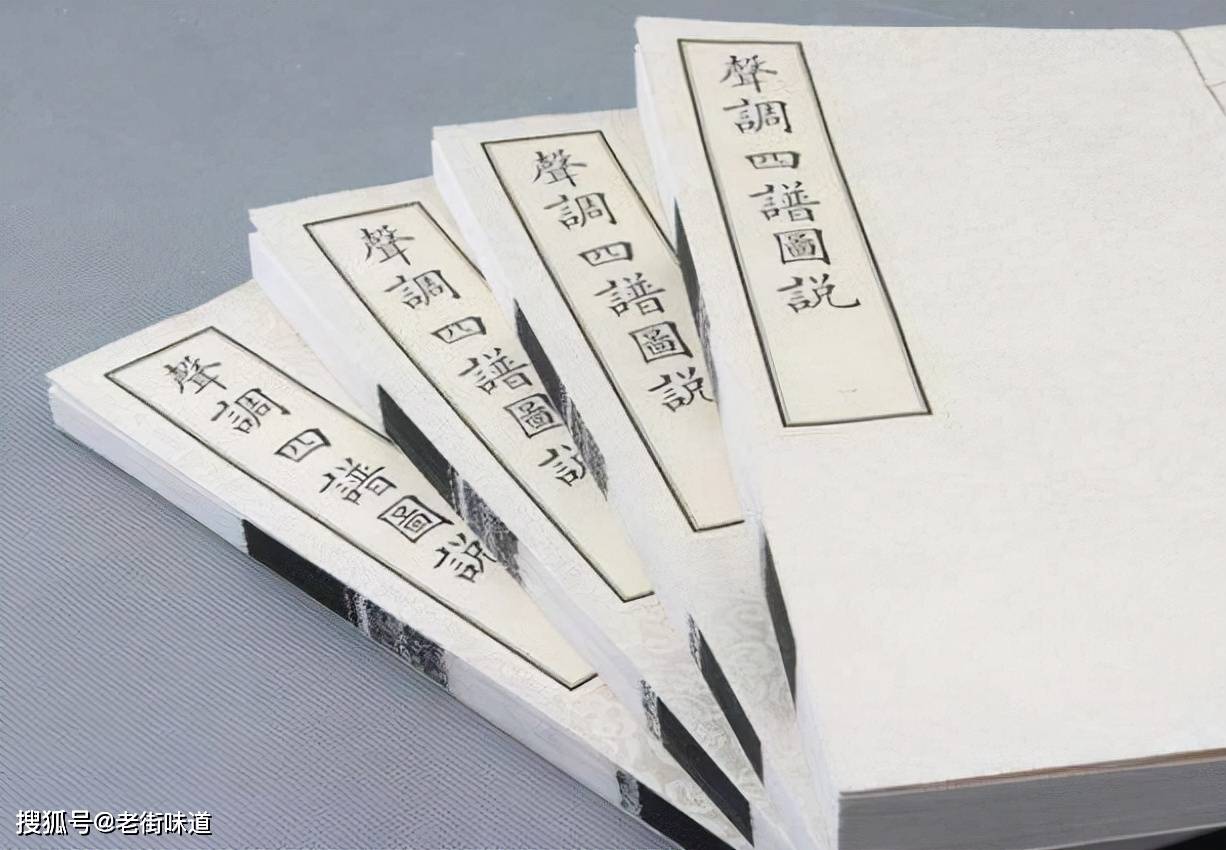 聲調四譜圖說
聲調四譜圖說
聲調四譜圖說
聲調四譜圖說
搜狐号@老街味道